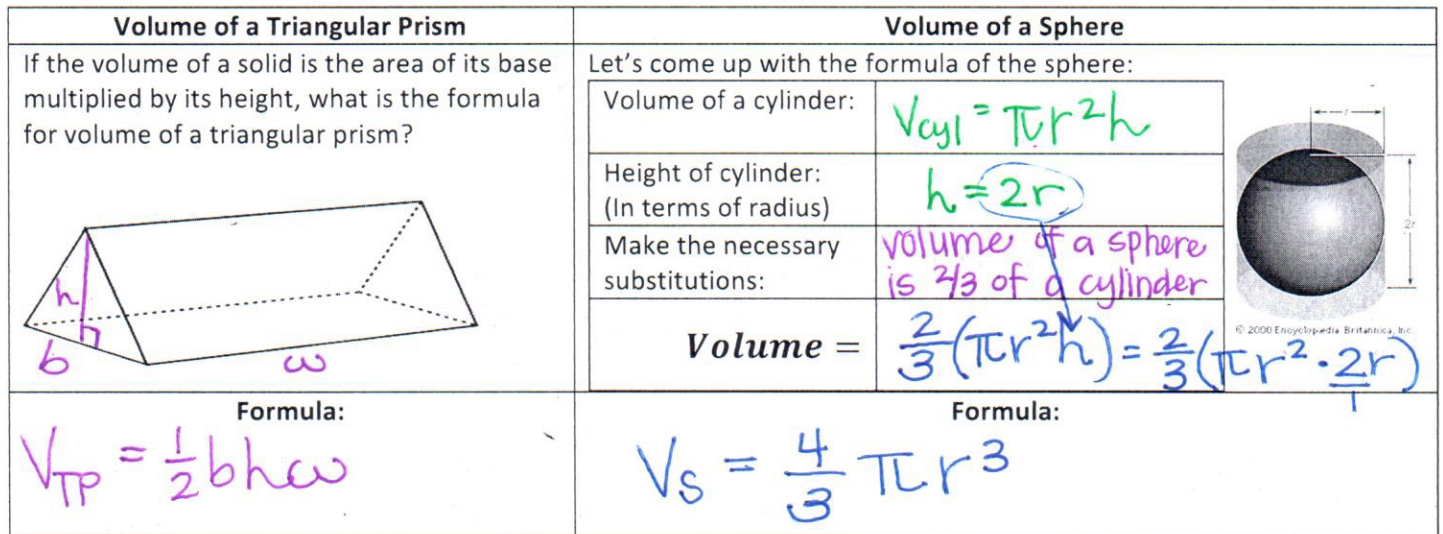 Volume of a Triangular Prism
If the volume of a solid is the area of its base
multiplied by its height, what is the formula
for volume of a triangular prism?
h
b
w
Formula:
V_TP = 1/2 bhw
Volume of a Sphere
Let's come up with the formula of the sphere:
Volume of a cylinder:
Vcyl = πr²h
Height of cylinder:
(In terms of radius)
h = 2r
Make the necessary
substitutions:
volume of a sphere
is 2/3 of a cylinder
Volume =
2/3 (πr²h) = 2/3 (πr² · 2r/1)
r
2r
© 2000 Encyclopædia Britannica, Inc.
Formula:
V_S = 4/3 πr³